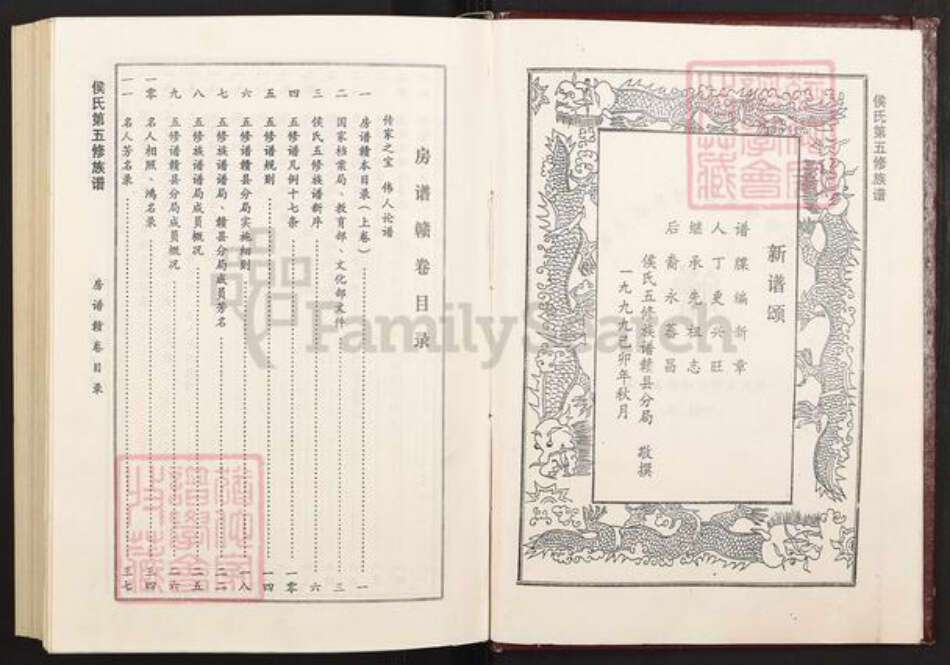 侯氏第五修族谱
新谱颂
谱牒编新章
人丁更兴旺
继承先祖志
后裔永蕃昌
侯氏五修族谱赣县分局 敬撰
一九九九己卯年秋月
房谱赣卷目录
传家之宝 伟人论谱
一 房谱赣本目录（上卷） 一
二 国家档案局、教育部、文化部文件 三
三 侯氏五修族谱新序 六
四 五修谱凡例十七条 一零
五 五修谱规则 一四
六 五修谱赣县分局实施细则 一八
七 五修族谱谱局、赣县分局成员芳名 二二
八 五修族谱谱局成员概况 二五
九 五修谱赣县分局成员概况 二六
一零 名人相照、鸿名录 三四
一一 名人芳名录 三七
侯氏第五修族谱
房谱赣卷目录
FamilySearch